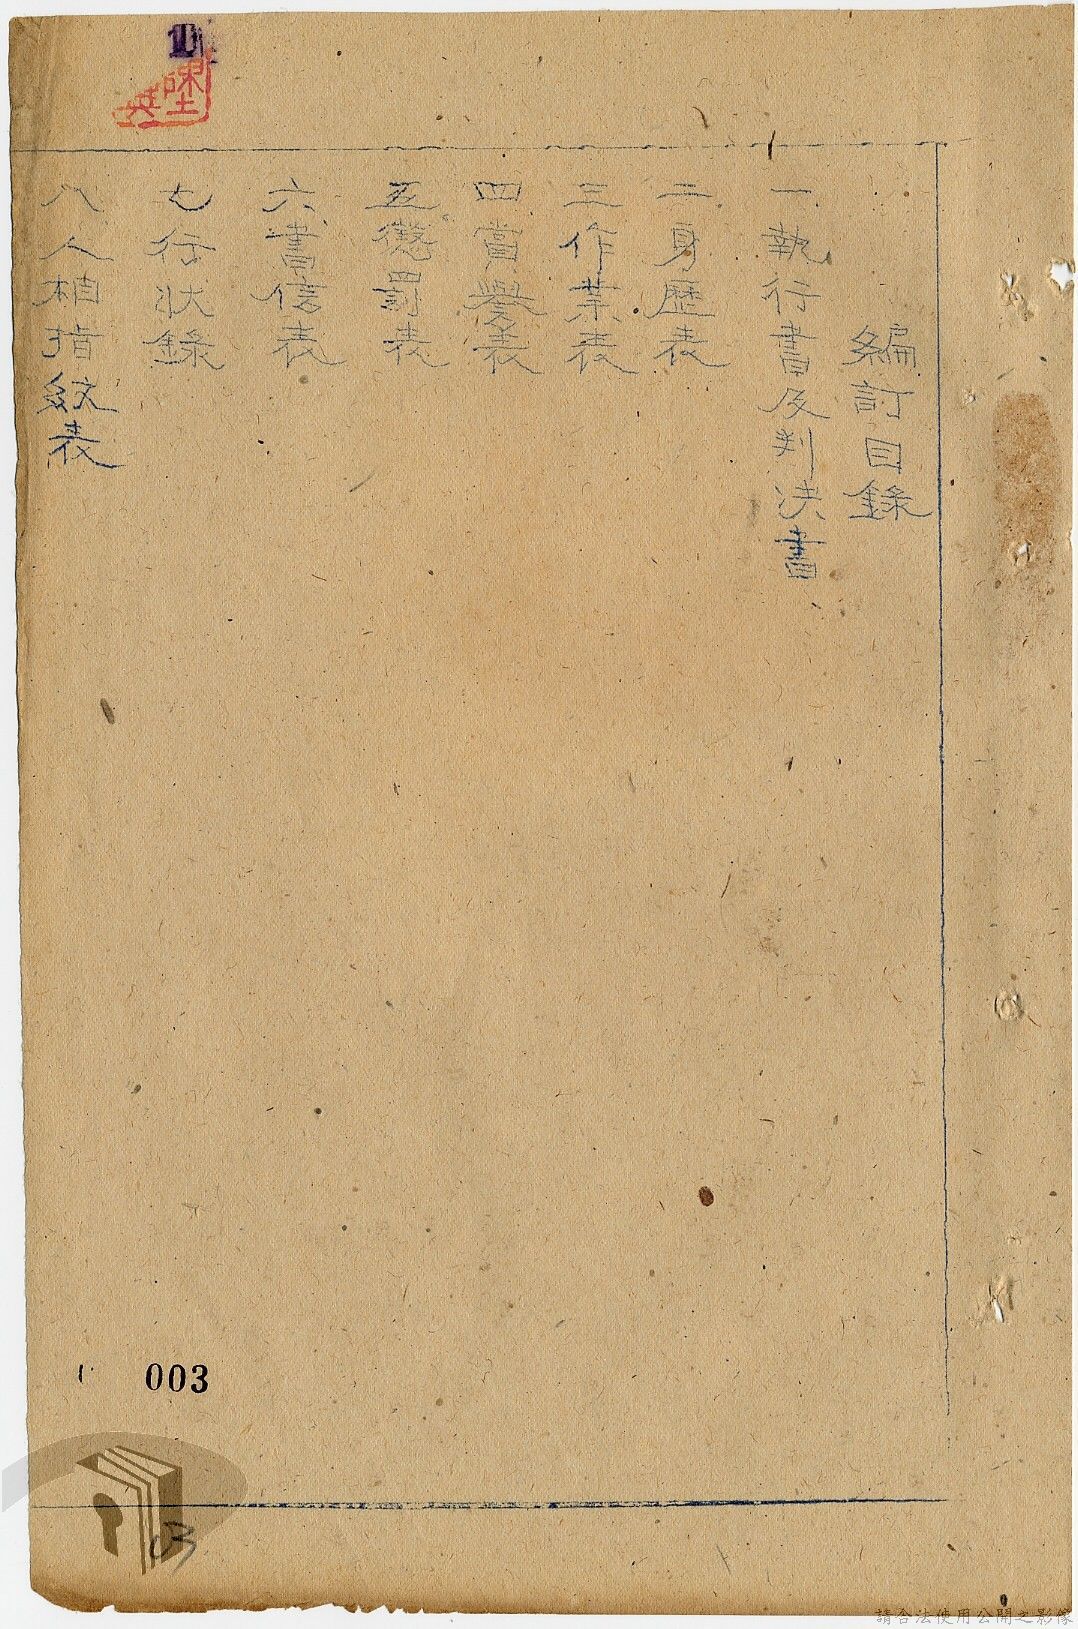 編訂目錄
一、執行書及判決書
二、身歷表
三、作業表
四、賞譽表
五、懲罰表
六、書信表
七、行狀錄
八、人相指紋表
003
03
請合法使用公開之影像